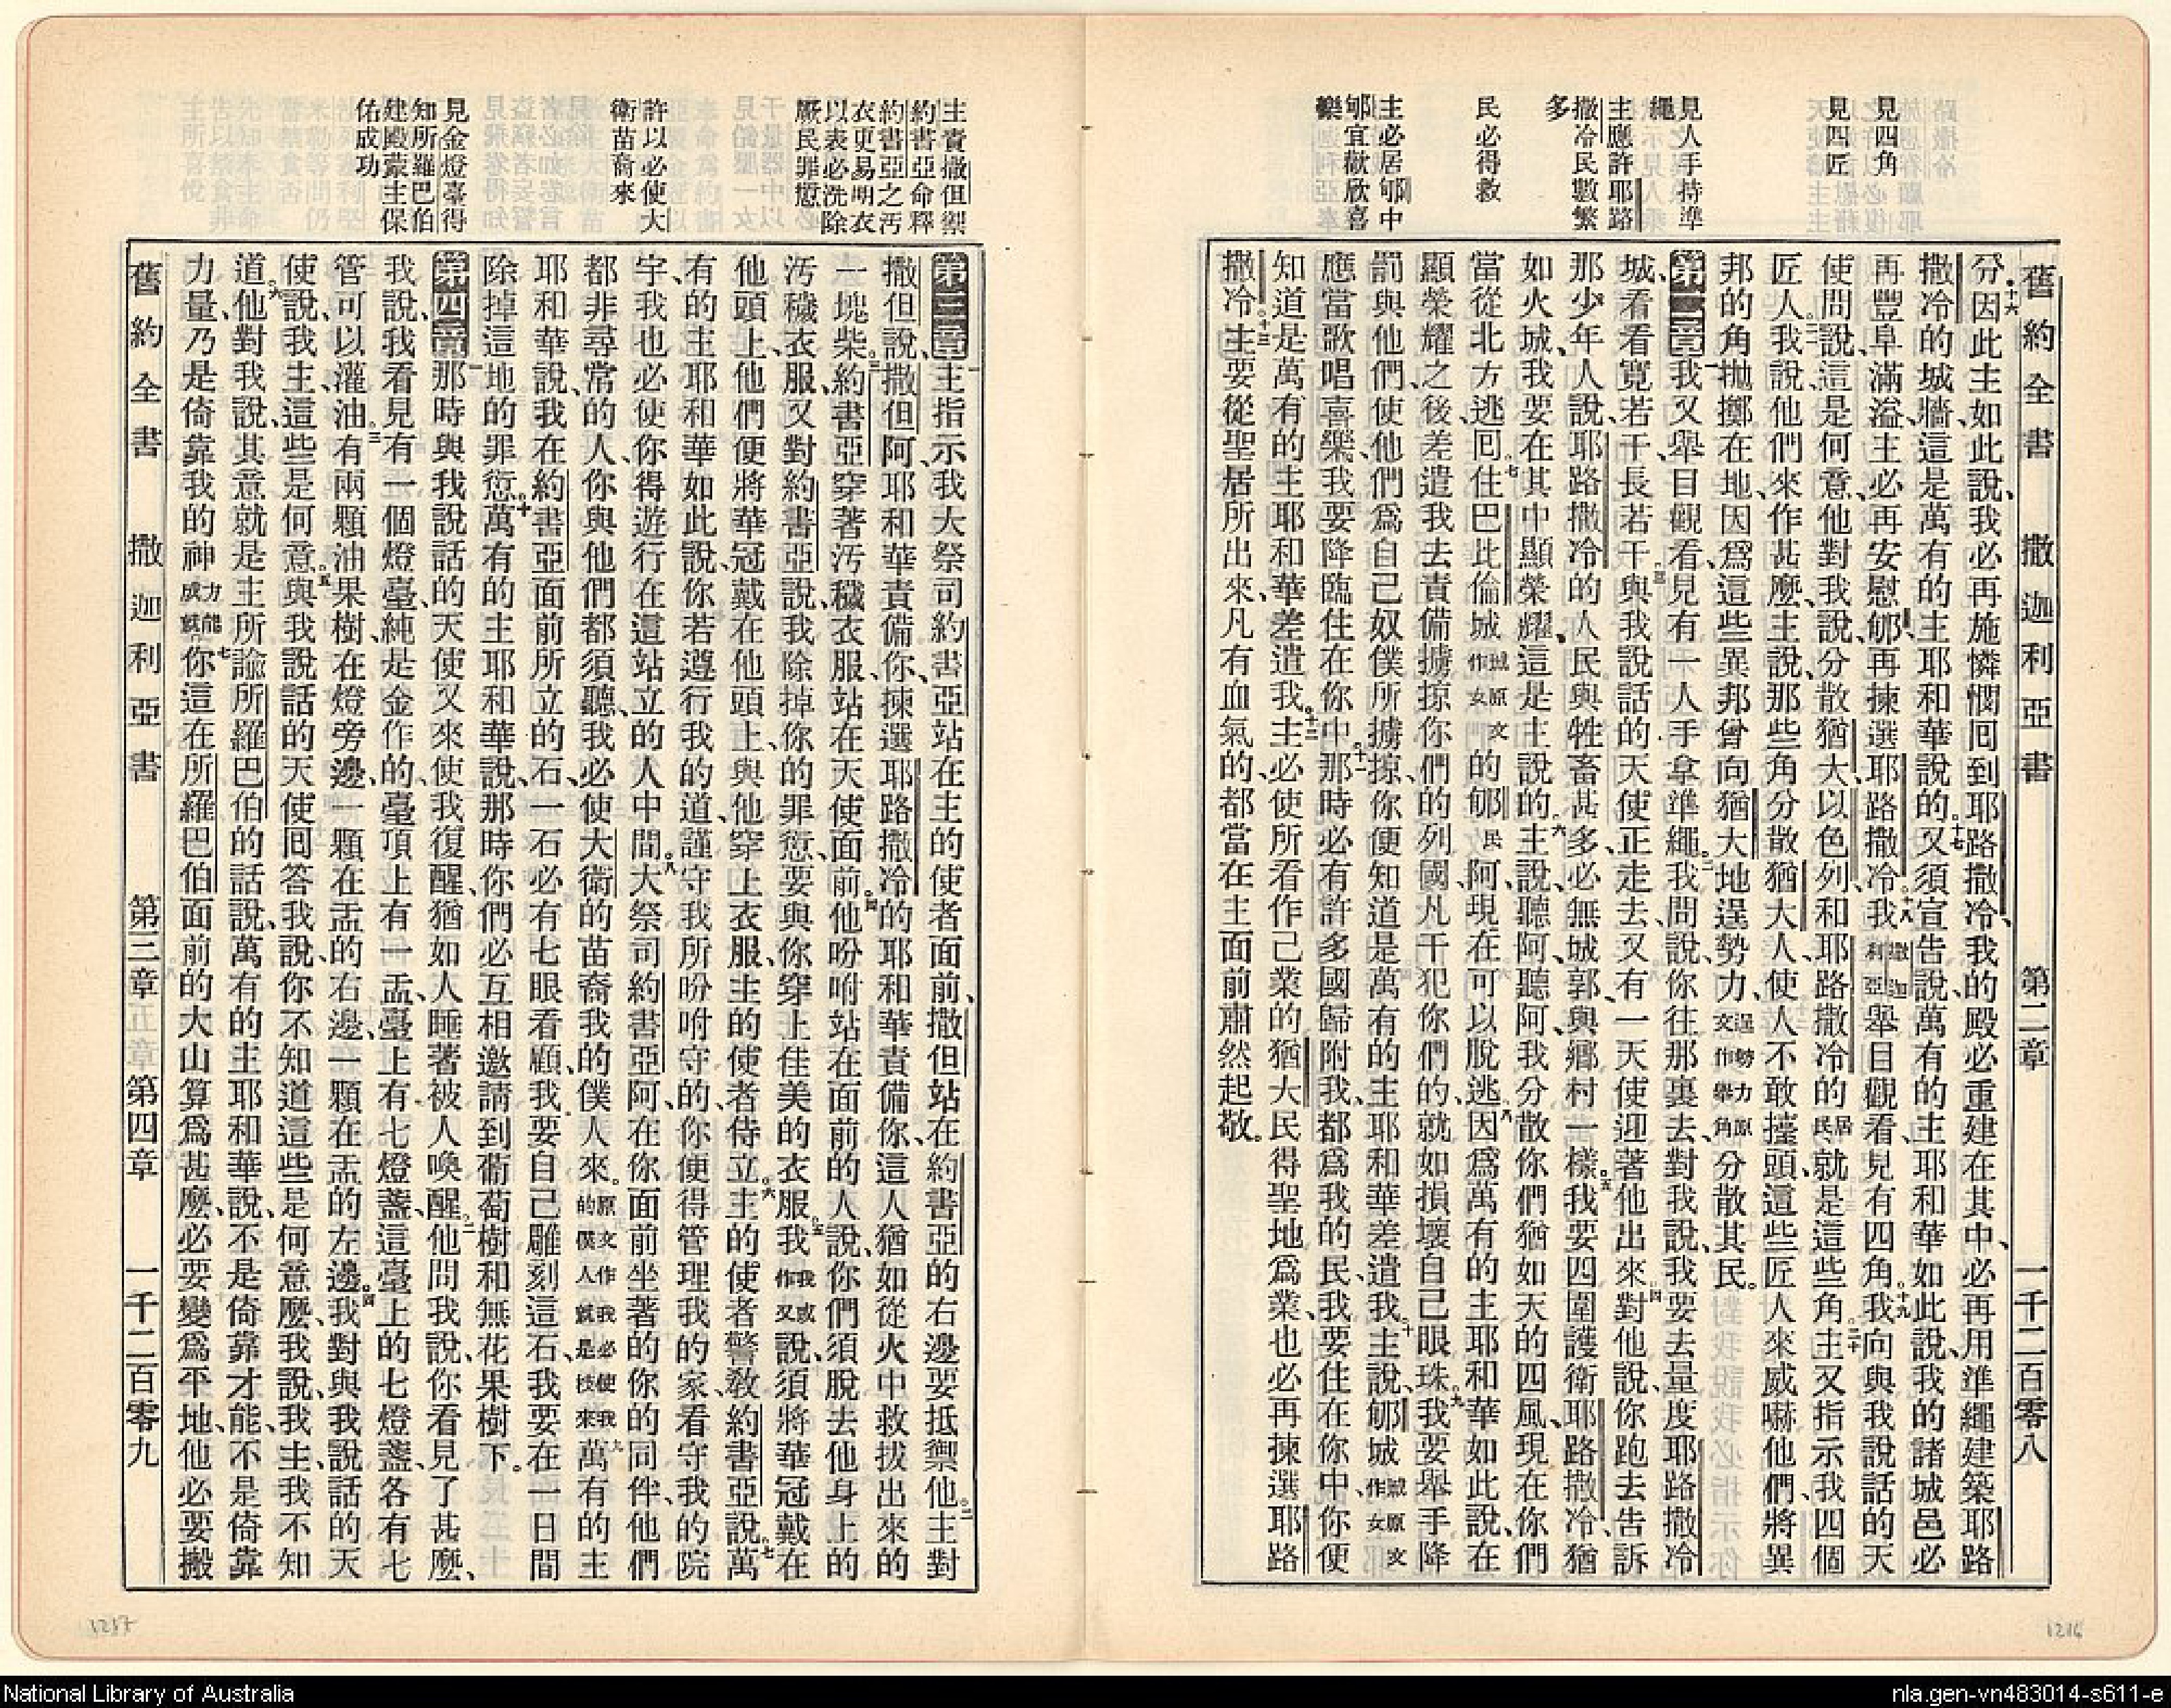 舊約全書　撒迦利亞書　第二章　一千二百零八
見四角
見四匠
見人手持準
繩
主應許耶路
撒冷民數繁
多
民必得救
主必居郇中
郇宜歡欣喜
樂
分、十六因此主如此說、我必再施憐憫回到耶路撒冷、我的殿必重建在其中、必再用準繩建築耶路
撒冷的城牆、這是萬有的主耶和華說的。十七又須宣告說、萬有的主耶和華如此說、我的諸城邑必
再豐阜滿溢、主必再安慰郇、再揀選耶路撒冷。十八我撒迦利亞舉目觀看、見有四角。十九我向與我說話的天
使問說、這是何意、他對我說、分散猶大以色列、和耶路撒冷的居民就是這些角。二十主又指示我四個
匠人。二一我說、他們來作甚麼、主說、那些角分散猶大人、使人不敢擡頭、這些匠人來威嚇他們、將異
邦的角拋擲在地、因爲這些異邦曾向猶大地逞勢力、逞勢力原文作舉角分散其民。
第二章一我又舉目觀看、見有一人手拿準繩。二我問說、你往那裏去、對我說、我要去量度耶路撒冷
城、看看寬若干長若干。三與我說話的天使正走去、又有一天使迎著他出來。四對他說、你跑去告訴
那少年人說、耶路撒冷的人民與牲畜甚多、必無城郭、與鄉村一樣。五我要四圍護衛耶路撒冷、猶
如火城、我要在其中顯榮耀、這是主說的。六主說、聽阿、聽阿、我分散你們猶如天的四風、現在你們
當從北方逃囘。七住巴比倫城城原文作女的郇民阿、現在可以脫逃。八因爲萬有的主耶和華如此說、在
顯榮耀之後、差遣我去責備擄掠你們的列國、凡干犯你們的、就如損壞自己眼珠。九我要舉手降
罰與他們、使他們爲自己奴僕所擄掠、你便知道是萬有的主耶和華差遣我。十主說、郇城城原文作女
應當歌唱喜樂、我要降臨住在你中。十一那時必有許多國歸附我、都爲我的民、我要住在你中、你便
知道是萬有的主耶和華差遣我。十二主必使所看作己業的猶大民得聖地爲業、也必再揀選耶路
撒冷。十三主要從聖居所出來、凡有血氣的、都當在主面前肅然起敬。
主責撒但禦
約書亞命釋
約書亞之汚
衣更易明衣
以表必洗除
厥民罪愆
許以必使大
衛苗裔來
見金燈臺得
知所羅巴伯
建殿蒙主保
佑成功
第三章一主指示我大祭司約書亞站在主的使者面前、撒但站在約書亞的右邊要抵禦他。二主對
撒但說、撒但阿、耶和華責備你、揀選耶路撒冷的耶和華責備你、這人猶如從火中救拔出來的
一塊柴。三約書亞穿著汚穢衣服、站在天使面前。四他吩咐站在面前的人說、你們須脫去他身上的
汚穢衣服、又對約書亞說、我除掉你的罪愆、要與你穿上佳美的衣服。五我我或作又說、須將華冠戴在
他頭上、他們便將華冠戴在他頭上、與他穿上衣服、主的使者侍立。六主的使者警教約書亞說、七萬
有的主耶和華如此說、你若遵行我的道、謹守我所吩咐守的、你便得管理我的家、看守我的院
宇、我也必使你得遊行在這站立的人中間。八大祭司約書亞阿、在你面前坐著的你的同伴、他們
都非尋常的人、你與他們都須聽、我必使大衛的苗裔我的僕人來。原文作我必使我的僕人就是枝來九萬有的主
耶和華說、我在約書亞面前所立的石、一石必有七眼看顧、我要自己雕刻這石、我要在一日間
除掉這地的罪愆。十萬有的主耶和華說、那時你們必互相邀請到葡萄樹和無花果樹下。
第四章一那時與我說話的天使又來、使我復醒、猶如人睡著被人喚醒、二他問我說、你看見了甚麼、
我說、我看見有一個燈臺、純是金作的、臺頂上有一盂、臺上有七燈盞、這臺上的七燈盞、各有七
管可以灌油。三有兩顆油果樹在燈旁邊、一顆在盂的右邊、一顆在盂的左邊。四我對與我說話的天
使說、我主、這些是何意。五與我說話的天使囘答我說、你不知道這些是何意麼、我說、我主、我不知
道。六他對我說、其意就是主所諭所羅巴伯的話說、萬有的主耶和華說、不是倚靠才能、不是倚靠
力量、乃是倚靠我的神。神力能成就七你這在所羅巴伯面前的大山算爲甚麼、必要變爲平地、他必要搬
舊約全書　撒迦利亞書　第三章　第四章　一千二百零九
1217
1216
National Library of Australia
nla.gen-vn483014-s611-e